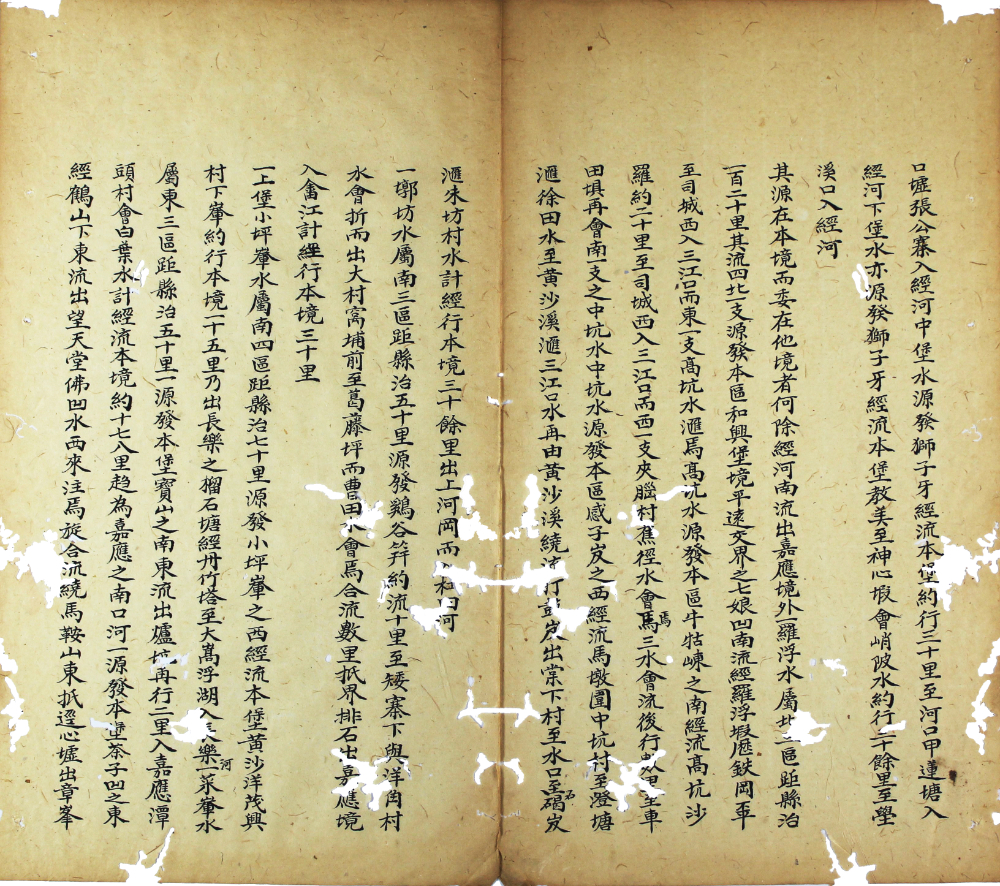 口墟張公寨入經河中堡水源發獅子牙經流本堡約行三十里至河口甲蓮塘入
經河下堡水亦源發獅子牙經流本堡教美至神心塅會峭陂水約行二十餘里至學
溪口入經河
其源在本境而委在他境者何除經河南流出嘉應境外一羅浮水屬北二區距縣治
一百二十里其流四北一支源發本區和興堡境平遠交界之七娘凹南流經羅浮塅歷鉄岡平
至司城西入三江口而東一支高坑水滙焉高坑水源發本區牛牯崠之南經流高坑沙
羅約二十里至司城西入三江口而西一支夾臘村蕉徑水會焉三水會流後行數里至車
田埧再會南一支之中坑水中坑水源發本區感子岌之西經流馬墩圍中坑村至澄塘
滙徐田水至黄沙溪滙三江口水再由黄沙溪繞流打彭岌出棠下村至水口至碣石岌
滙朱坊村水計經行本境三十餘里出上河岡而 和田河
一墎坊水屬南三區距縣治五十里源發鷄谷笄約流十里至矮寨下與洋角村
水會折而出大村窩埔前至葛藤坪而曹田水會焉合流數里抵界排石出嘉應境
入畬江計經行本境三十里
一上堡小坪輋水屬南四區距縣治七十里源發小坪輋之西經流本堡黄沙洋茂興
村下輋約行本境一十五里乃出長樂之榴石塘經丹竹塔至大嵩浮湖入長樂河一菜輋水
屬東三區距縣治五十里一源發本堡寶山之南東流出爐坑再行二里入嘉應潭
頭村會白葉水計經流本境約十七八里趋為嘉應之南口河一源發本堡茶子凹之東
經鶴山下東流出望天堂佛凹水西來注焉旋合流繞馬鞍山東抵逕心墟出章峯